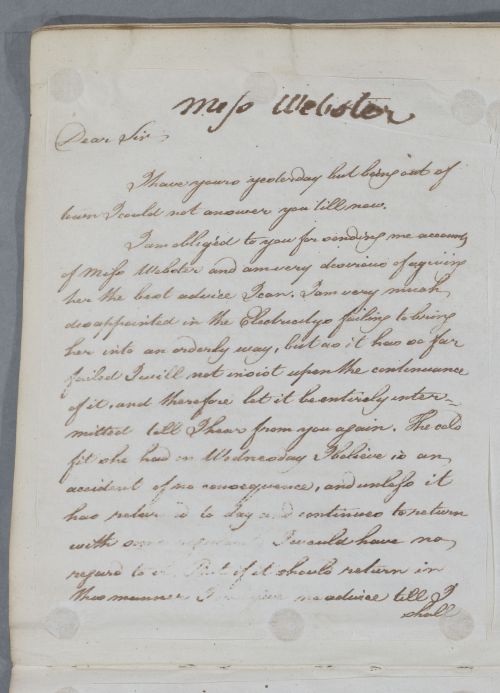 Miss Webster
Dear Sir
I have yours yesterday but being out of
town I could not answer you 'till now.
I am obliged to you for sending me accounts
of Miss Webster and am very desirous of giving
her the best advice I can. I am very much
disappointed in the Electricitys failing to bring
her into an orderly way, but as it has so far
failed I will not insist upon the continuance
of it, and therefore let it be entirely inter-
mitted till I hear from you again. The cold
fit she had on Wednesday I believe is an
accident of no consequence, and unless it
has return'd to day and continues to return
with some I would have no
regard to it. But if it should return in
this manner I can give no advice till I
shall